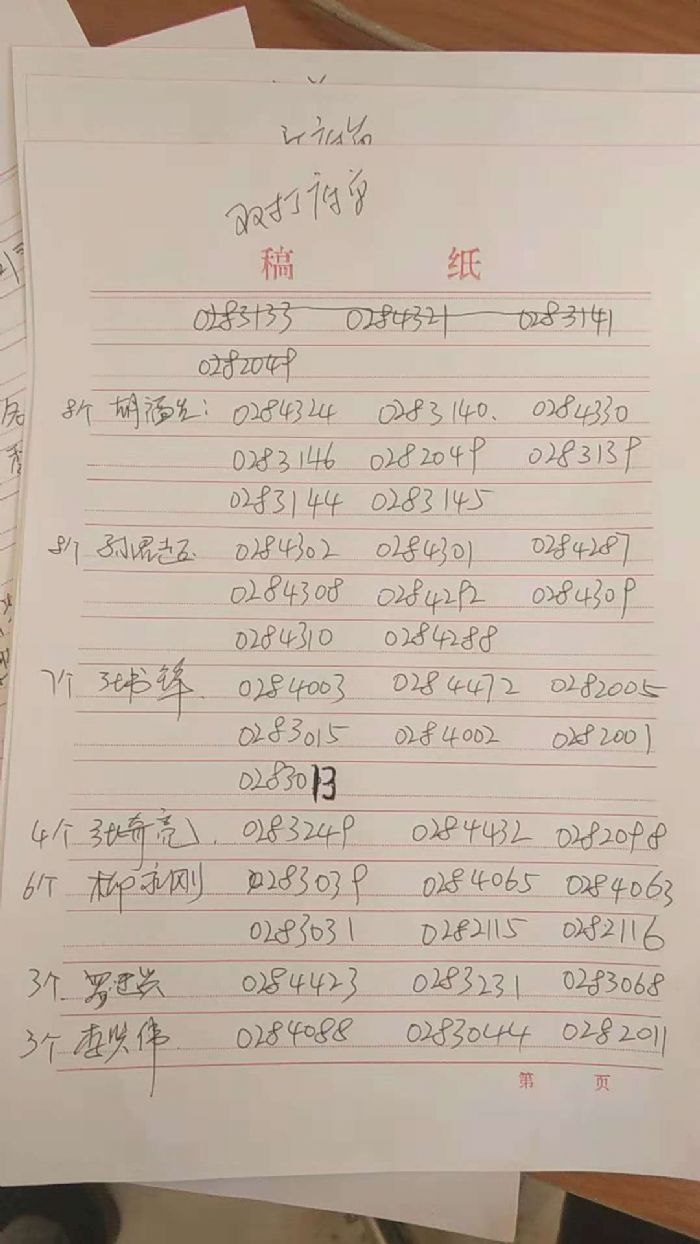 双打
稿 纸
0283133 0284321 0283141
0282049
8个 胡海生: 0284324 0283140. 0284330
0283146 0282049 0283139
0283144 0283145
8个 0284302 0284301 0284287
0284308 0284292 0284309
0284310 0284288
7个 张书锋 0284003 0284472 0282005
0283015 0284002 0282001
0283013
4个 张奇亮 0283249 0284432 0282098
6个 柳永刚 0283039 0284065 0284063
0283031 0282115 0282116
3个 0284423 0283231 0283068
3个 李贤伟 0284088 0283044 0282011
第 页